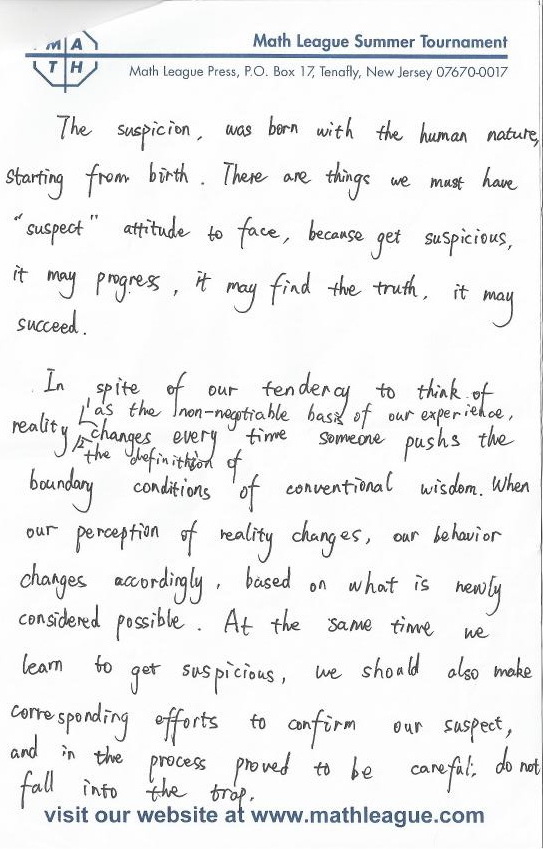 M A
T H
Math League Summer Tournament
Math League Press, P.O. Box 17, Tenafly, New Jersey 07670-0017
The suspicion, was born with the human nature,
starting from birth. There are things we must have
"suspect" attitude to face, because get suspicious,
it may progress, it may find the truth, it may
succeed.
In spite of our tendercy to think of
as the non-negotiable basis of our experience,
reality changes every time someone pushs the
the definithion of
boundary conditions of conventional wisdom. When
our perception of reality changes, our behavior
changes accordingly, based on what is newly
considered possible. At the same time we
learn to get suspicious, we should also make
corresponding efforts to confirm our suspect,
and in the process proved to be careful; do not
fall into the trap.
visit our website at www.mathleague.com